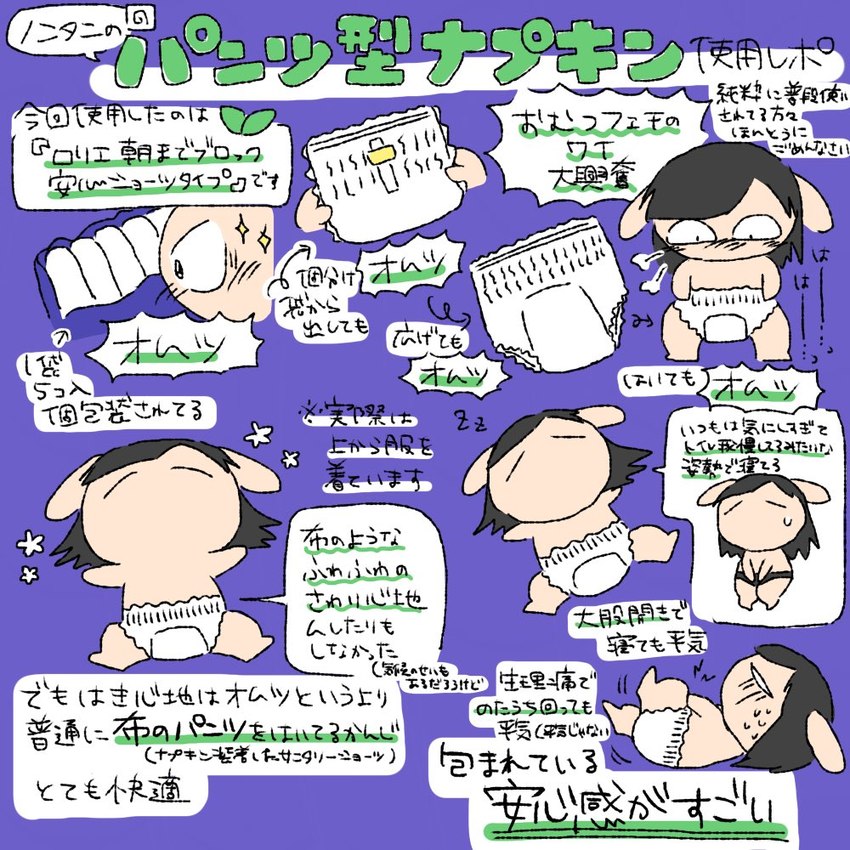 ノンタニの
パンツ型ナプキン
使用レポ
今回使用したのは
『ロリエ朝までブロック
安心ショーツタイプ』です
おむつフェチの
ワイ
大興奮
純粋に普段使い
されてる方々
ほんとうに
ごめんなさい
オムツ
1袋
5コ入
個包装されてる
個分け
袋から
出しても
オムツ
広げても
オムツ
はいても
オムツ
はーーっ
はーーっ
※実際は
上から服を
着ています
zz
いつもは気にしすぎて
トイレ我慢してるみたいな
姿勢で寝てる
布のような
ふわふわの
さわり心地
ムレたりも
しなかった
(気候のせいも
あるだろうけど
大股開きで
寝ても平気
でもはき心地はオムツというより
普通に布のパンツをはいてるかんじ
(ナプキン装着したサニタリーショーツ)
とても快適
生理痛で
のたうち回っても
平気(平気じゃない
包まれている
安心感がすごい